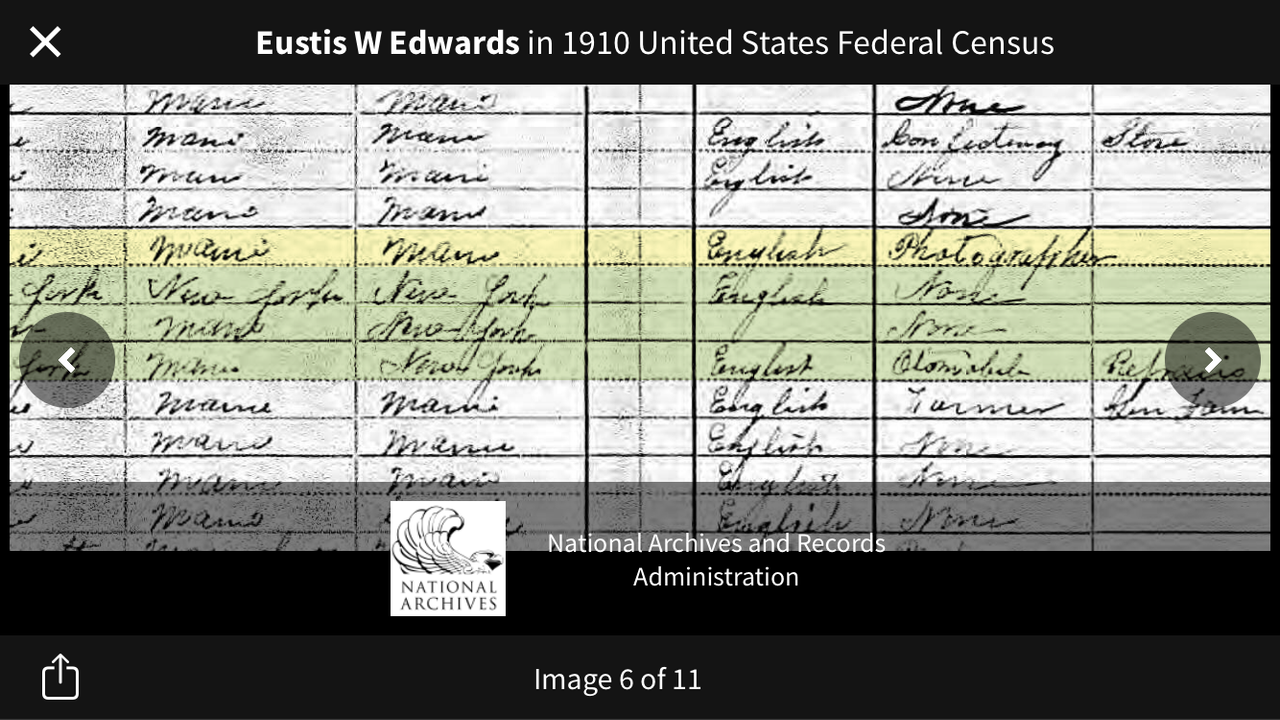 Eustis W Edwards in 1910 United States Federal Census
Maine Maine None
Maine Maine English Confectionary Store
Maine Maine English None
Maine Maine None
Maine Maine English Photographer
York New York New York English None
Maine New York None
York Maine New York English Otomobile Repairs
Maine Maine English Farmer Gen Farm
Maine Maine English None
Maine Maine English None
Maine English None
NATIONAL
ARCHIVES
National Archives and Records
Administration
Image 6 of 11